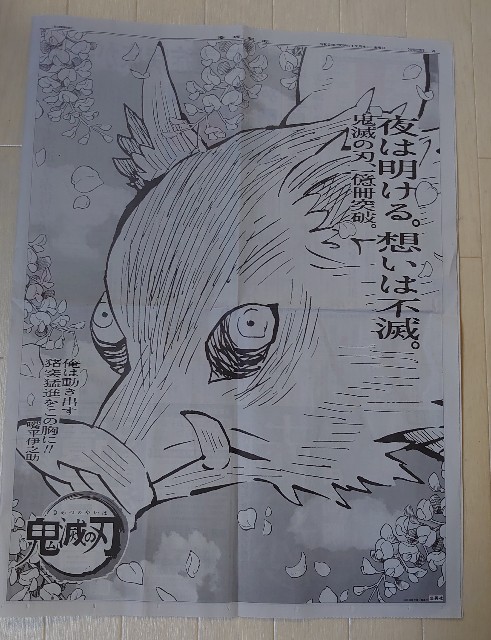 夜は明ける。想いは不滅。
鬼滅の刃、一億冊突破。
俺は動き出す
猪突猛進をこの胸に!!
嘴平伊之助
きめつのやいば
鬼滅の刃